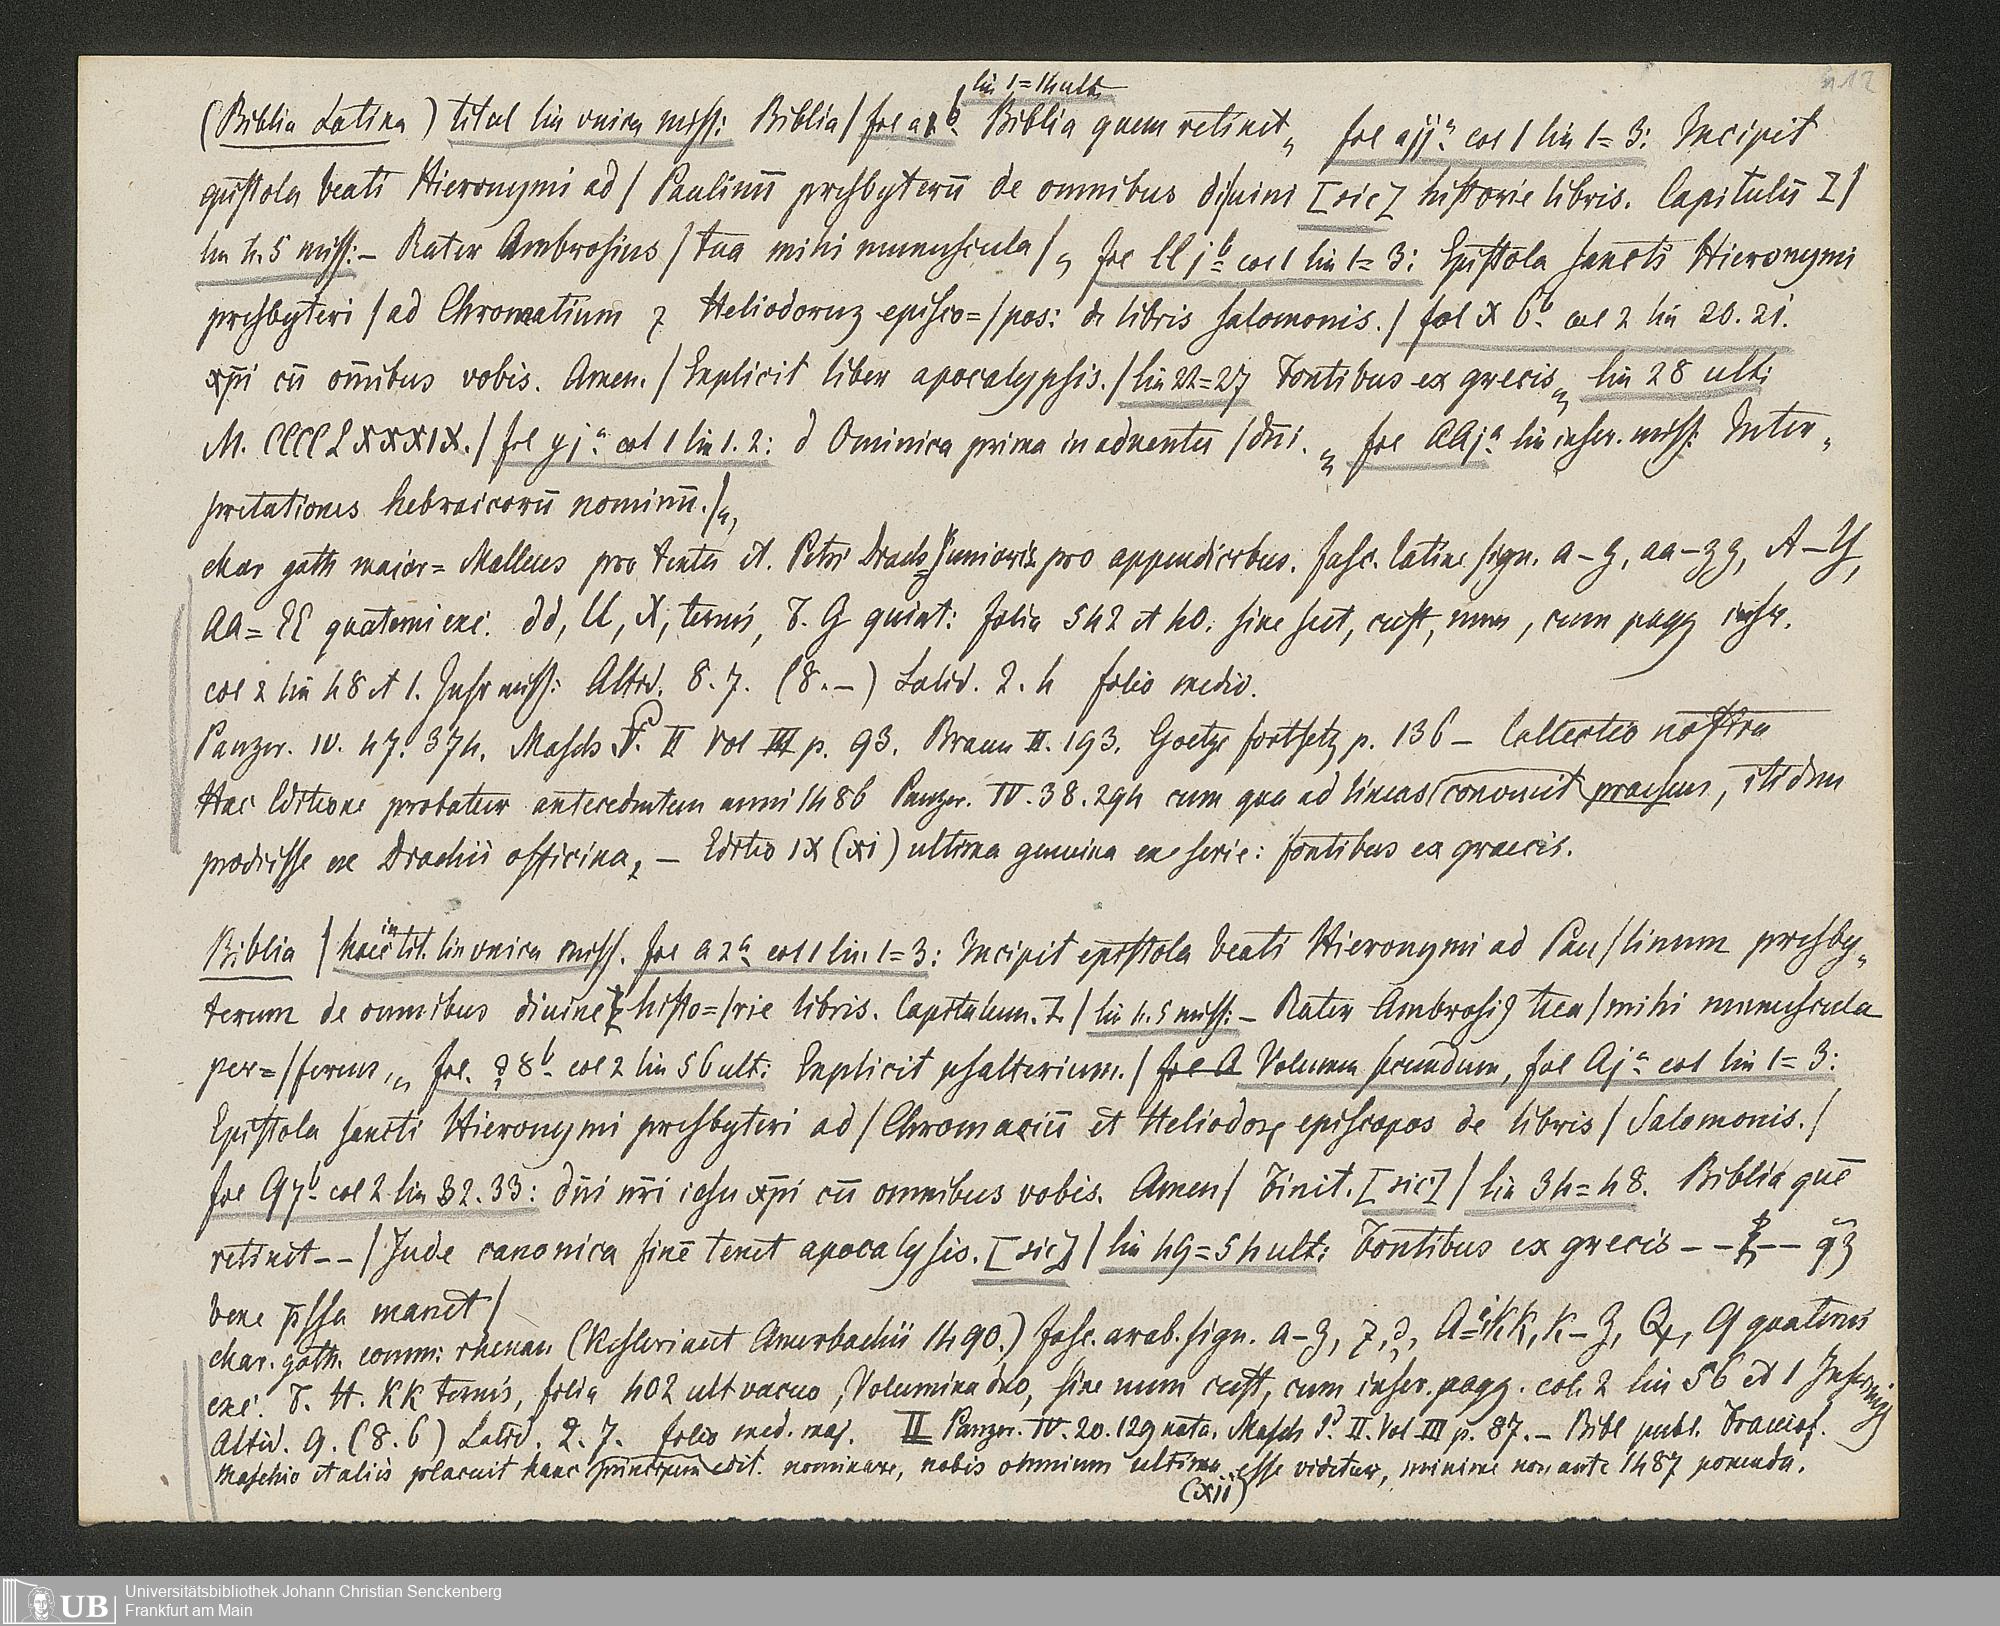 412
lin 1=14 ult:
(Biblia Latina) titul lin unica miss: Biblia / fol a1b. Biblia quem retinet„ fol aija col 1 lin 1=3: Incipit
epistola beati Hieronymi ad / Paulinū presbyterū de omnibus di/uini [sic] historie libris. Capitulū I /
lin 4.5 miss:- Rater Ambrosius / tua mihi munuscula / „ fol ll jb col 1 lin 1=3: Epistola sancti Hieronymi
presbyteri / ad Chromatium ⁊ Heliodoruz episco=/pos: de libris salomonis. / fol X 6b. col 2 lin 20. 21.
xp̄i cū oīnibus vobis. Amen. / Explicit liber apocalypsis. / lin 22=27 Fontibus ex grecis„ lin 28 ult:
M. CCCC LXXXIX. / fol yja col 1 lin 1. 2: d Ominica prima in aduentu / dn̄i. „ fol AAja lin infer. miss: Inter„
pretationes hebraicorū nominū. / „
char goth major= Malleus pro textu et. Petri Drach Junioris pro appendicibus. fasc. latine sign. a-z, aa-zz, A-Y,
AA=EE quaterni exc. dd, ll, X, ternis, T. G quint: folia 542 et 40. sine scut, cust, num, cum pagg inscr.
col 2 lin 48 et 1. Inscr miss: Altid. 8. 7. (8.-) Latid. 2. 4 folio medio.
Panzer. IV. 47. 374. Masch P. II Vol III p. 93. Braun II. 193. Goetze fortsetz p. 136 - Collectio nostra
Hac Editione probatur antecedentem anni 1486 Panzer. IV. 38. 294 cum qua ad lineas convenit praesens, itidem
prodiisse ex Drachii officina, - Editio IX (XI) ultima genuina ex serie: fontibus ex graecis.
Biblia / haec in tit. lin unica miss. fol a 2a col 1 lin 1=3: Incipit epistola beati Hieronymi ad Pau/linum presby„
terum de omnibus diuine histo=/rie libris. Capitulum. I. / lin 4. 5 miss:- Rater Ambrosiꝰ tua / mihi munuscula
per=/ferens,„ fol. 8b. col 2 lin 56 ult: Explicit psalterium. / fol A Volumen secundum, fol Aja col lin 1=3:
Epistola sancti Hieronymi presbyteri ad / Chromaciū et Heliodoꝝ episcopos de libris / Salomonis. /
fol Q7b. col 2 lin 32. 33: dn̄i nr̄i iesu xp̄i cū omnibus vobis. Amen / Finit. [sic] / lin 34=48. Biblia quē
retinet-- / Jude canonica finē tenet apocalysis. [sic] / lin 49=54 ult: Fontibus ex grecis -- -- qz
bene p̄ssa manet /
char. goth. comm: rhenan (Kesleri aut Amerbachii 1490.) fasc. arab. sign. a-z, ⁊, A= KK, K-Z, Q quaternis
exc. T. H. KK ternis, folia 402 ult vacuo, Volumina duo, sine num cust, cum inscr. pagg. col. 2 lin 56 et 1 Inscr miss
Altid. 9. (8. 6) Latid. 2. 7. folio med. maj. II Panzer. IV. 20. 129 nota. Masch P. II. Vol III p. 87. - Bibl publ. Francof.
Maschio et aliis placuit hanc principem edit. nominare, nobis omnium ultima esse videtur, minime non ante 1487 ponenda.
(XII)
UB
Universitätsbibliothek Johann Christian Senckenberg
Frankfurt am Main